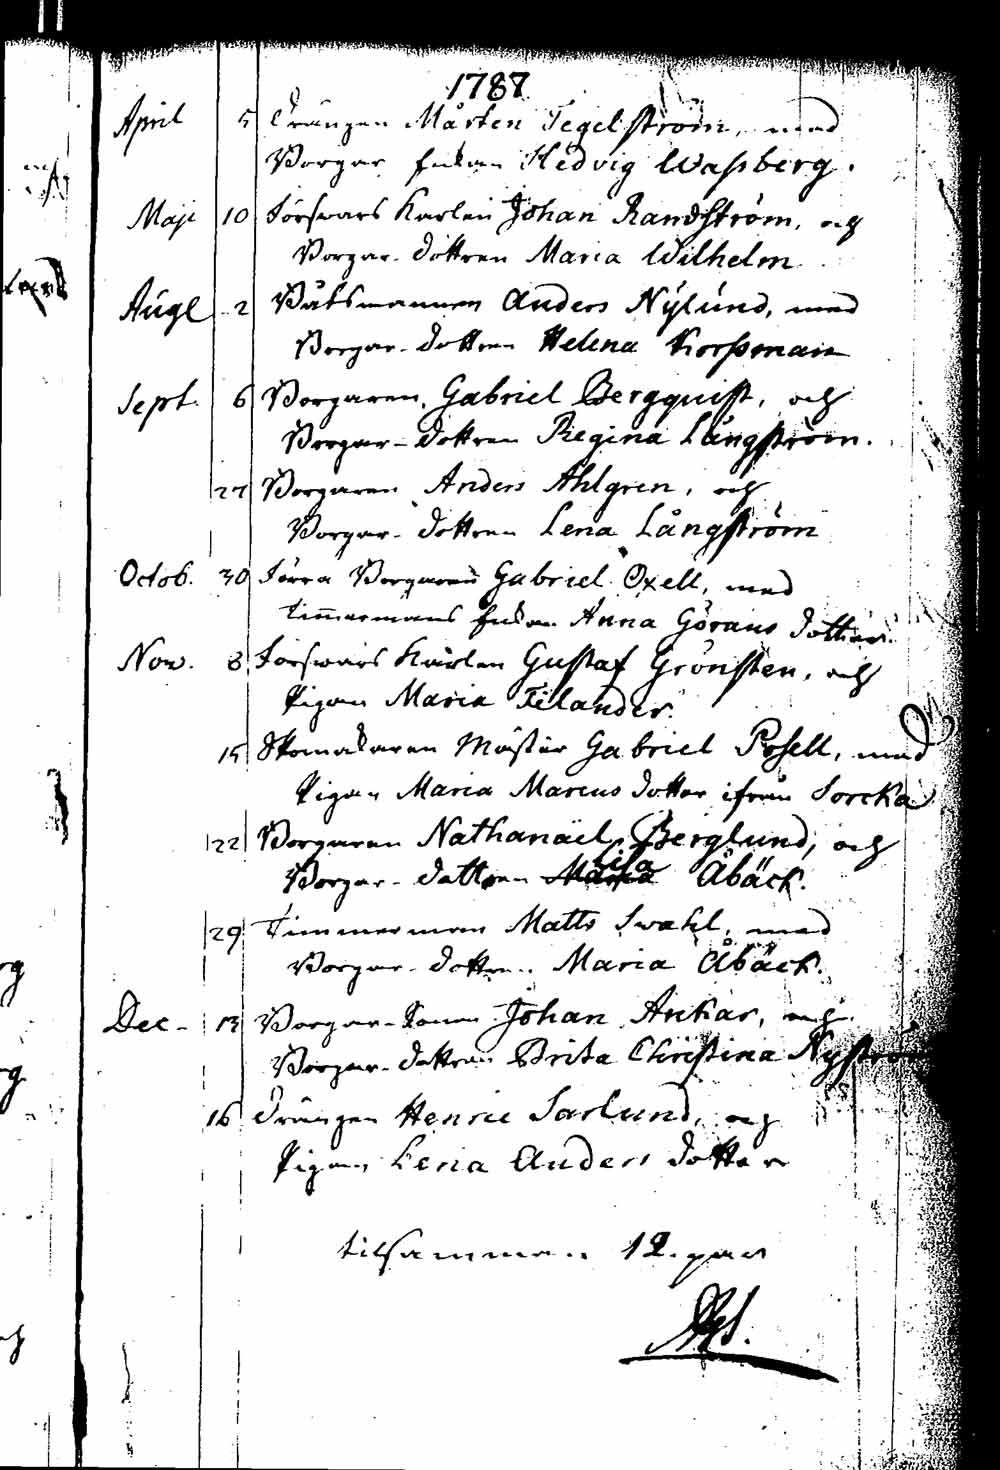 1787
April 5 Drängen Mårten Tegelström, med
Borgar Enkan Hedvig Waßberg.
Maji 10 Försvars Karlen Johan Randström, och
Borgar-dottren Maria Wilhelm
Augl 2 Båtsmannen Anders Nylund, med
Borgar-dottren Helena Korßman
Sept. 6 Borgaren, Gabriel Bergquist, och
Borgar-dottren Regina Långström.
27 Borgaren Anders Ahlgren, och
Borgar-dottren Lena Långström
Octob. 30 Förra Borgaren Gabriel Oxell, med
Timmermans Enkan Anna Görans dotter.
Nov. 8 Försvars Karlen Gustaf Grönsten, och
Pigan Maria Tilander.
15 Skomakaren Mäster Gabriel Posell, med
Pigan Maria Marcus dotter ifrån Sorcka
22 Borgaren Nathanael Berglund, och
Lisa
Borgar-dottren Maria Åbäck.
29 Timmerman Matts Swahl, med
Borgar-dottren Maria Åbäck.
Dec- 13 Borgar-Sonen Johan Ankar, och
Borgar-dottren Brita Christina Nyström
16 Drängen Henric Sarlund, och
Pigan Lena Anders dotter
tilsammans 12. par